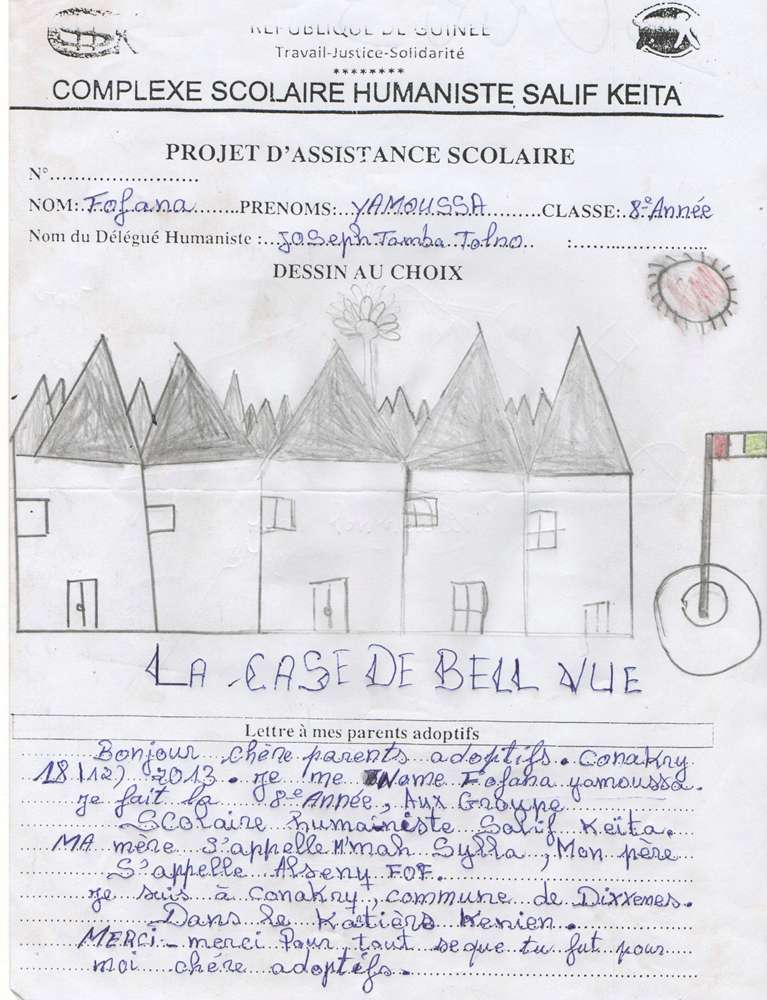 REPUBLIQUE DE GUINEE
Travail-Justice-Solidarité
********
COMPLEXE SCOLAIRE HUMANISTE SALIF KEITA
PROJET D'ASSISTANCE SCOLAIRE
N°........................
NOM:.Fofana.......PRENOMS:..YAMOUSSA.........CLASSE:.8e Année
Nom du Délégué Humaniste :...Joseph Tamba Tolno.. :.......................
DESSIN AU CHOIX
LA CASE DE BELL VUE
Lettre à mes parents adoptifs
Bonjour chère parents adoptifs. Conakry
18/12/2013. je me Name Fofana yamoussa.
je fait la 8e Année, Aux Groupe
Scolaire humainiste Salif Keïta.
MA mère S'appelle M'mah Sylla, Mon père
S'appelle Alseny FOF.
je suis à Conakry, commune de Dixxenes.
Dans le Katière Kenien.
MERCI - merci Pour tout se que tu fut pour
moi chére adoptifs.